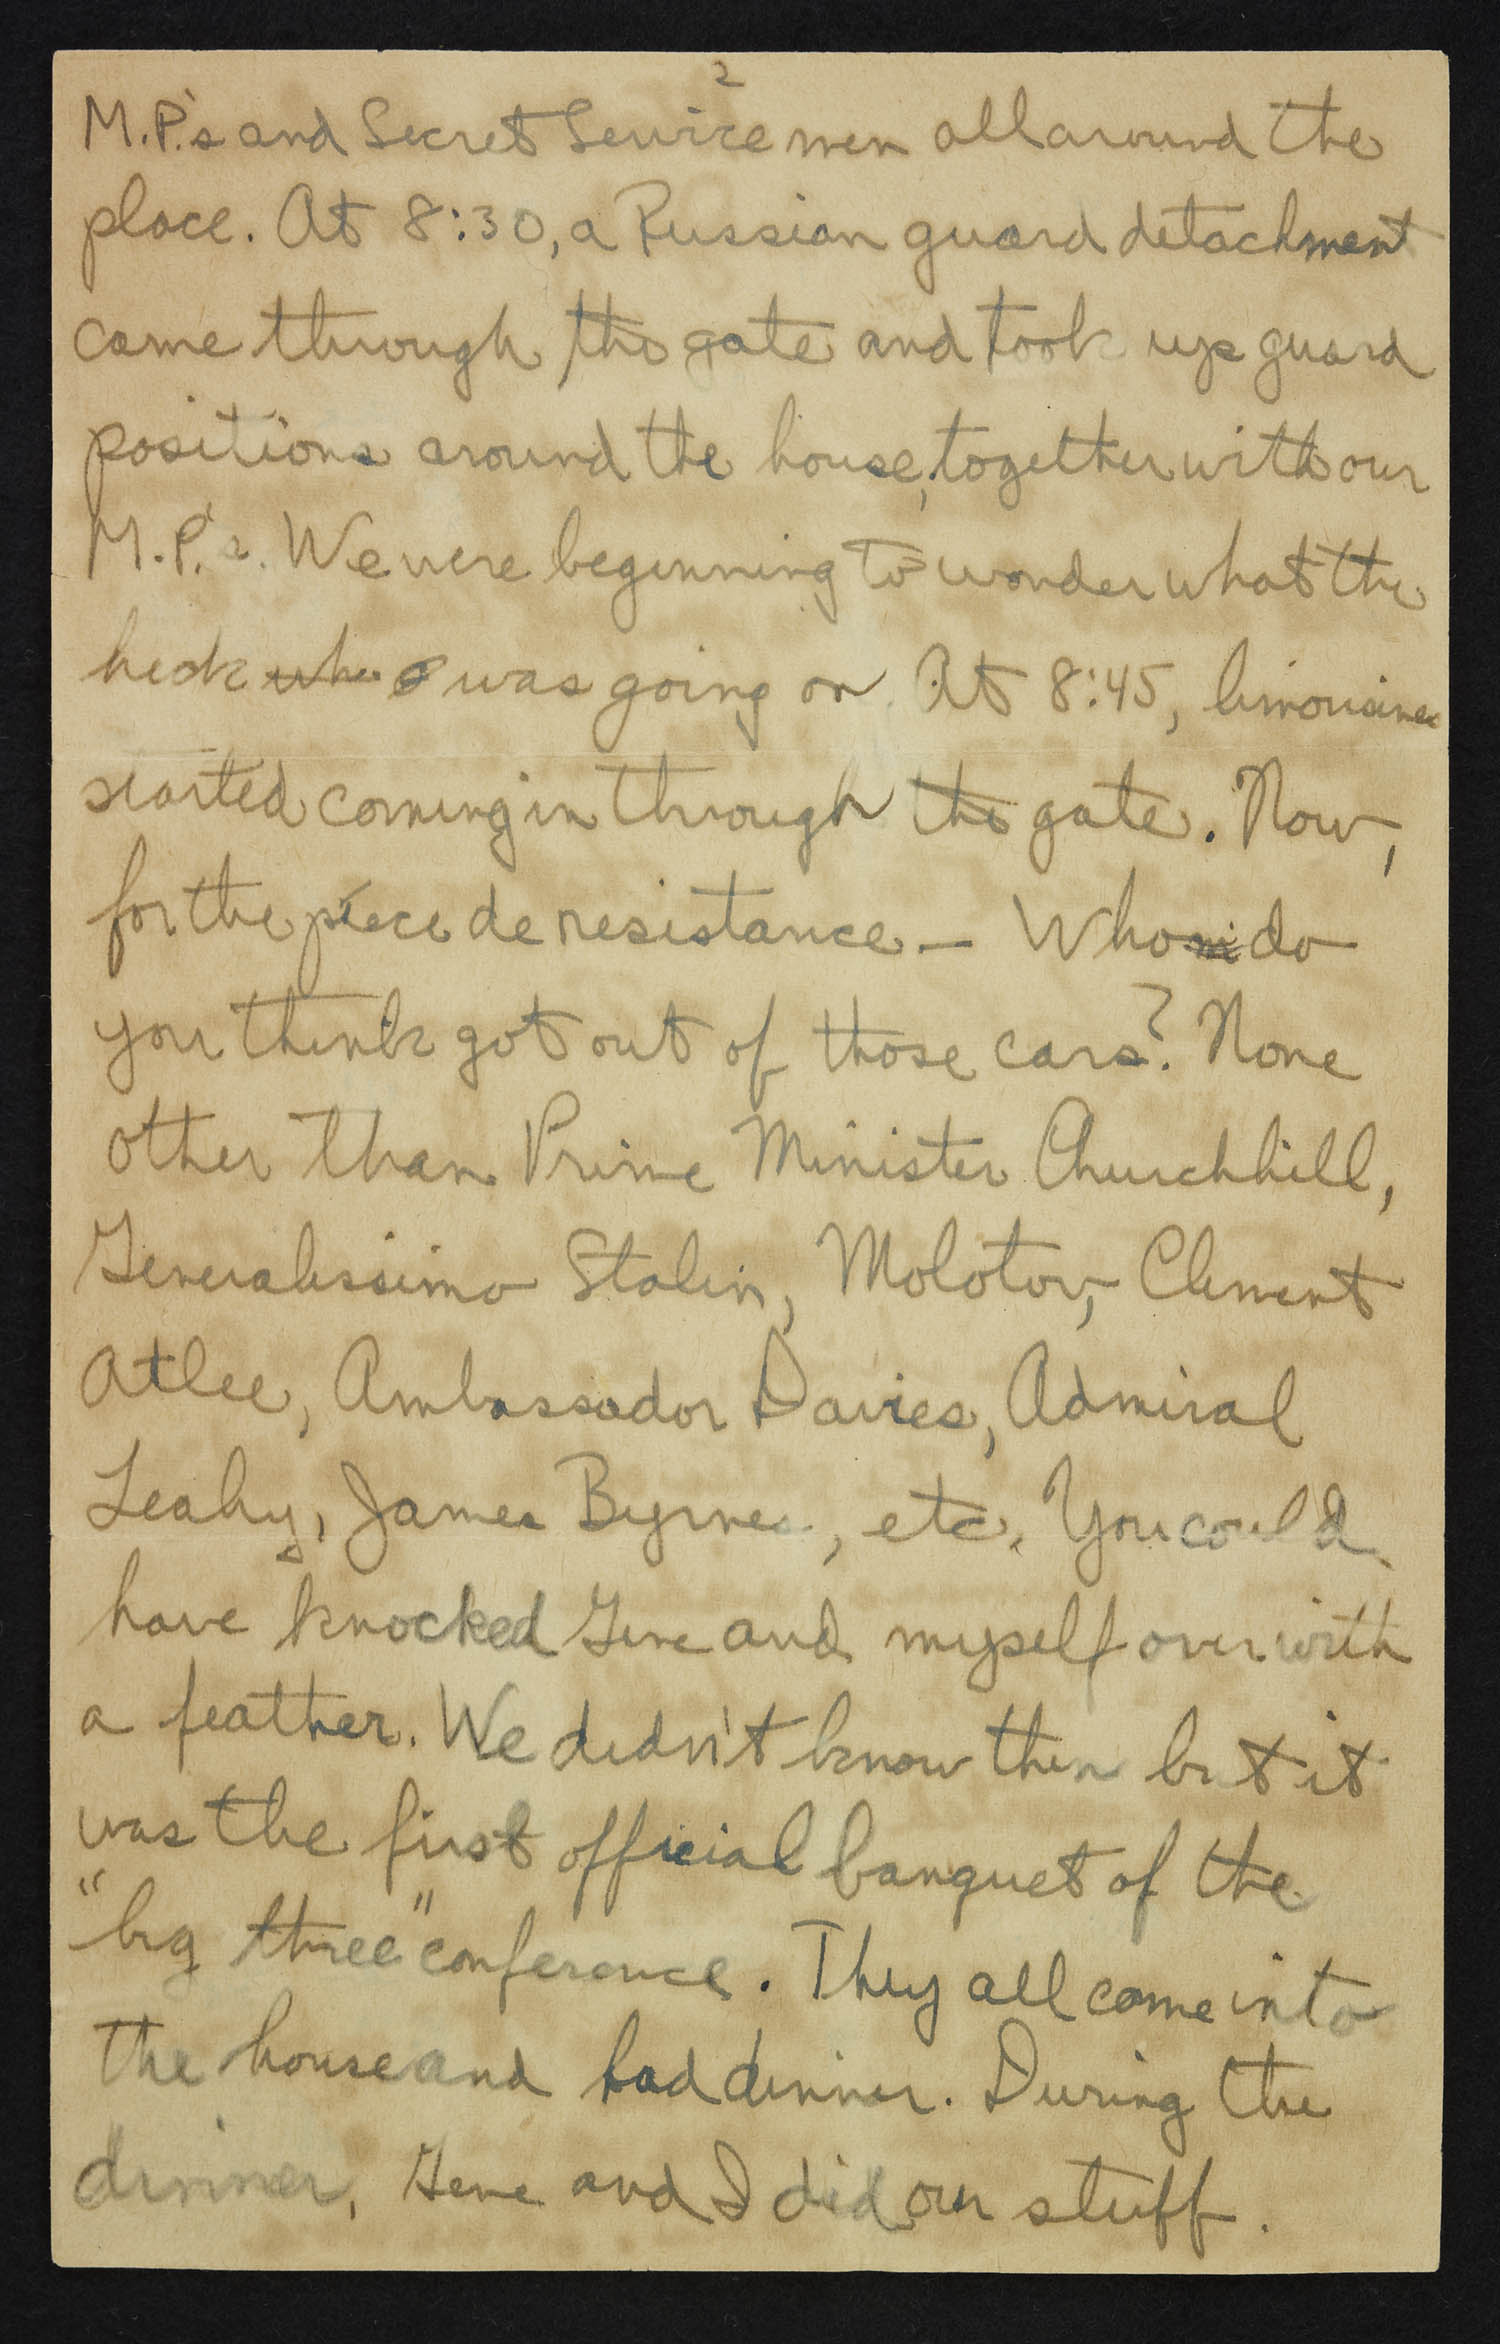 2
M.P.'s and Secret Service men all around the
place. At 8:30, a Russian guard detachment
came through the gate and took up guard
positions around the house, together with our
M.P.'s. We were beginning to wonder what the
heck was going on. At 8:45, limousines
started coming in through the gate. Now,
for the piéce de resistance — Who do
you think got out of those cars? None
other than Prime Minister Churchhill,
Generalissimo Stalin, Molotov, Clement
Atlee, Ambassador Davies, Admiral
Leahy, James Byrnes, etc. You could
have knocked Gene and myself over with
a feather. We didn't know then but it
was the first official banquet of the
"big three" conference. They all came into
the house and had dinner. During the
dinner, Gene and I did our stuff.